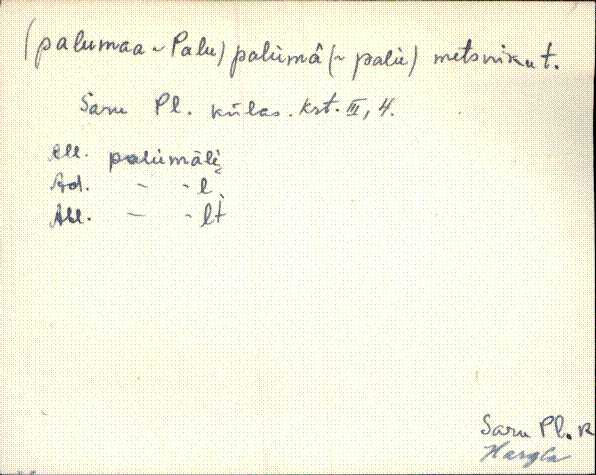 (palumaa ~ Palu) palùmâ (~ palù) metsnikut.
Saru Pl. külas. krt. III, 4.
All. palùmālẹ
Ad. – - l
Abl. – - lt
Saru Pl. k
Hargla